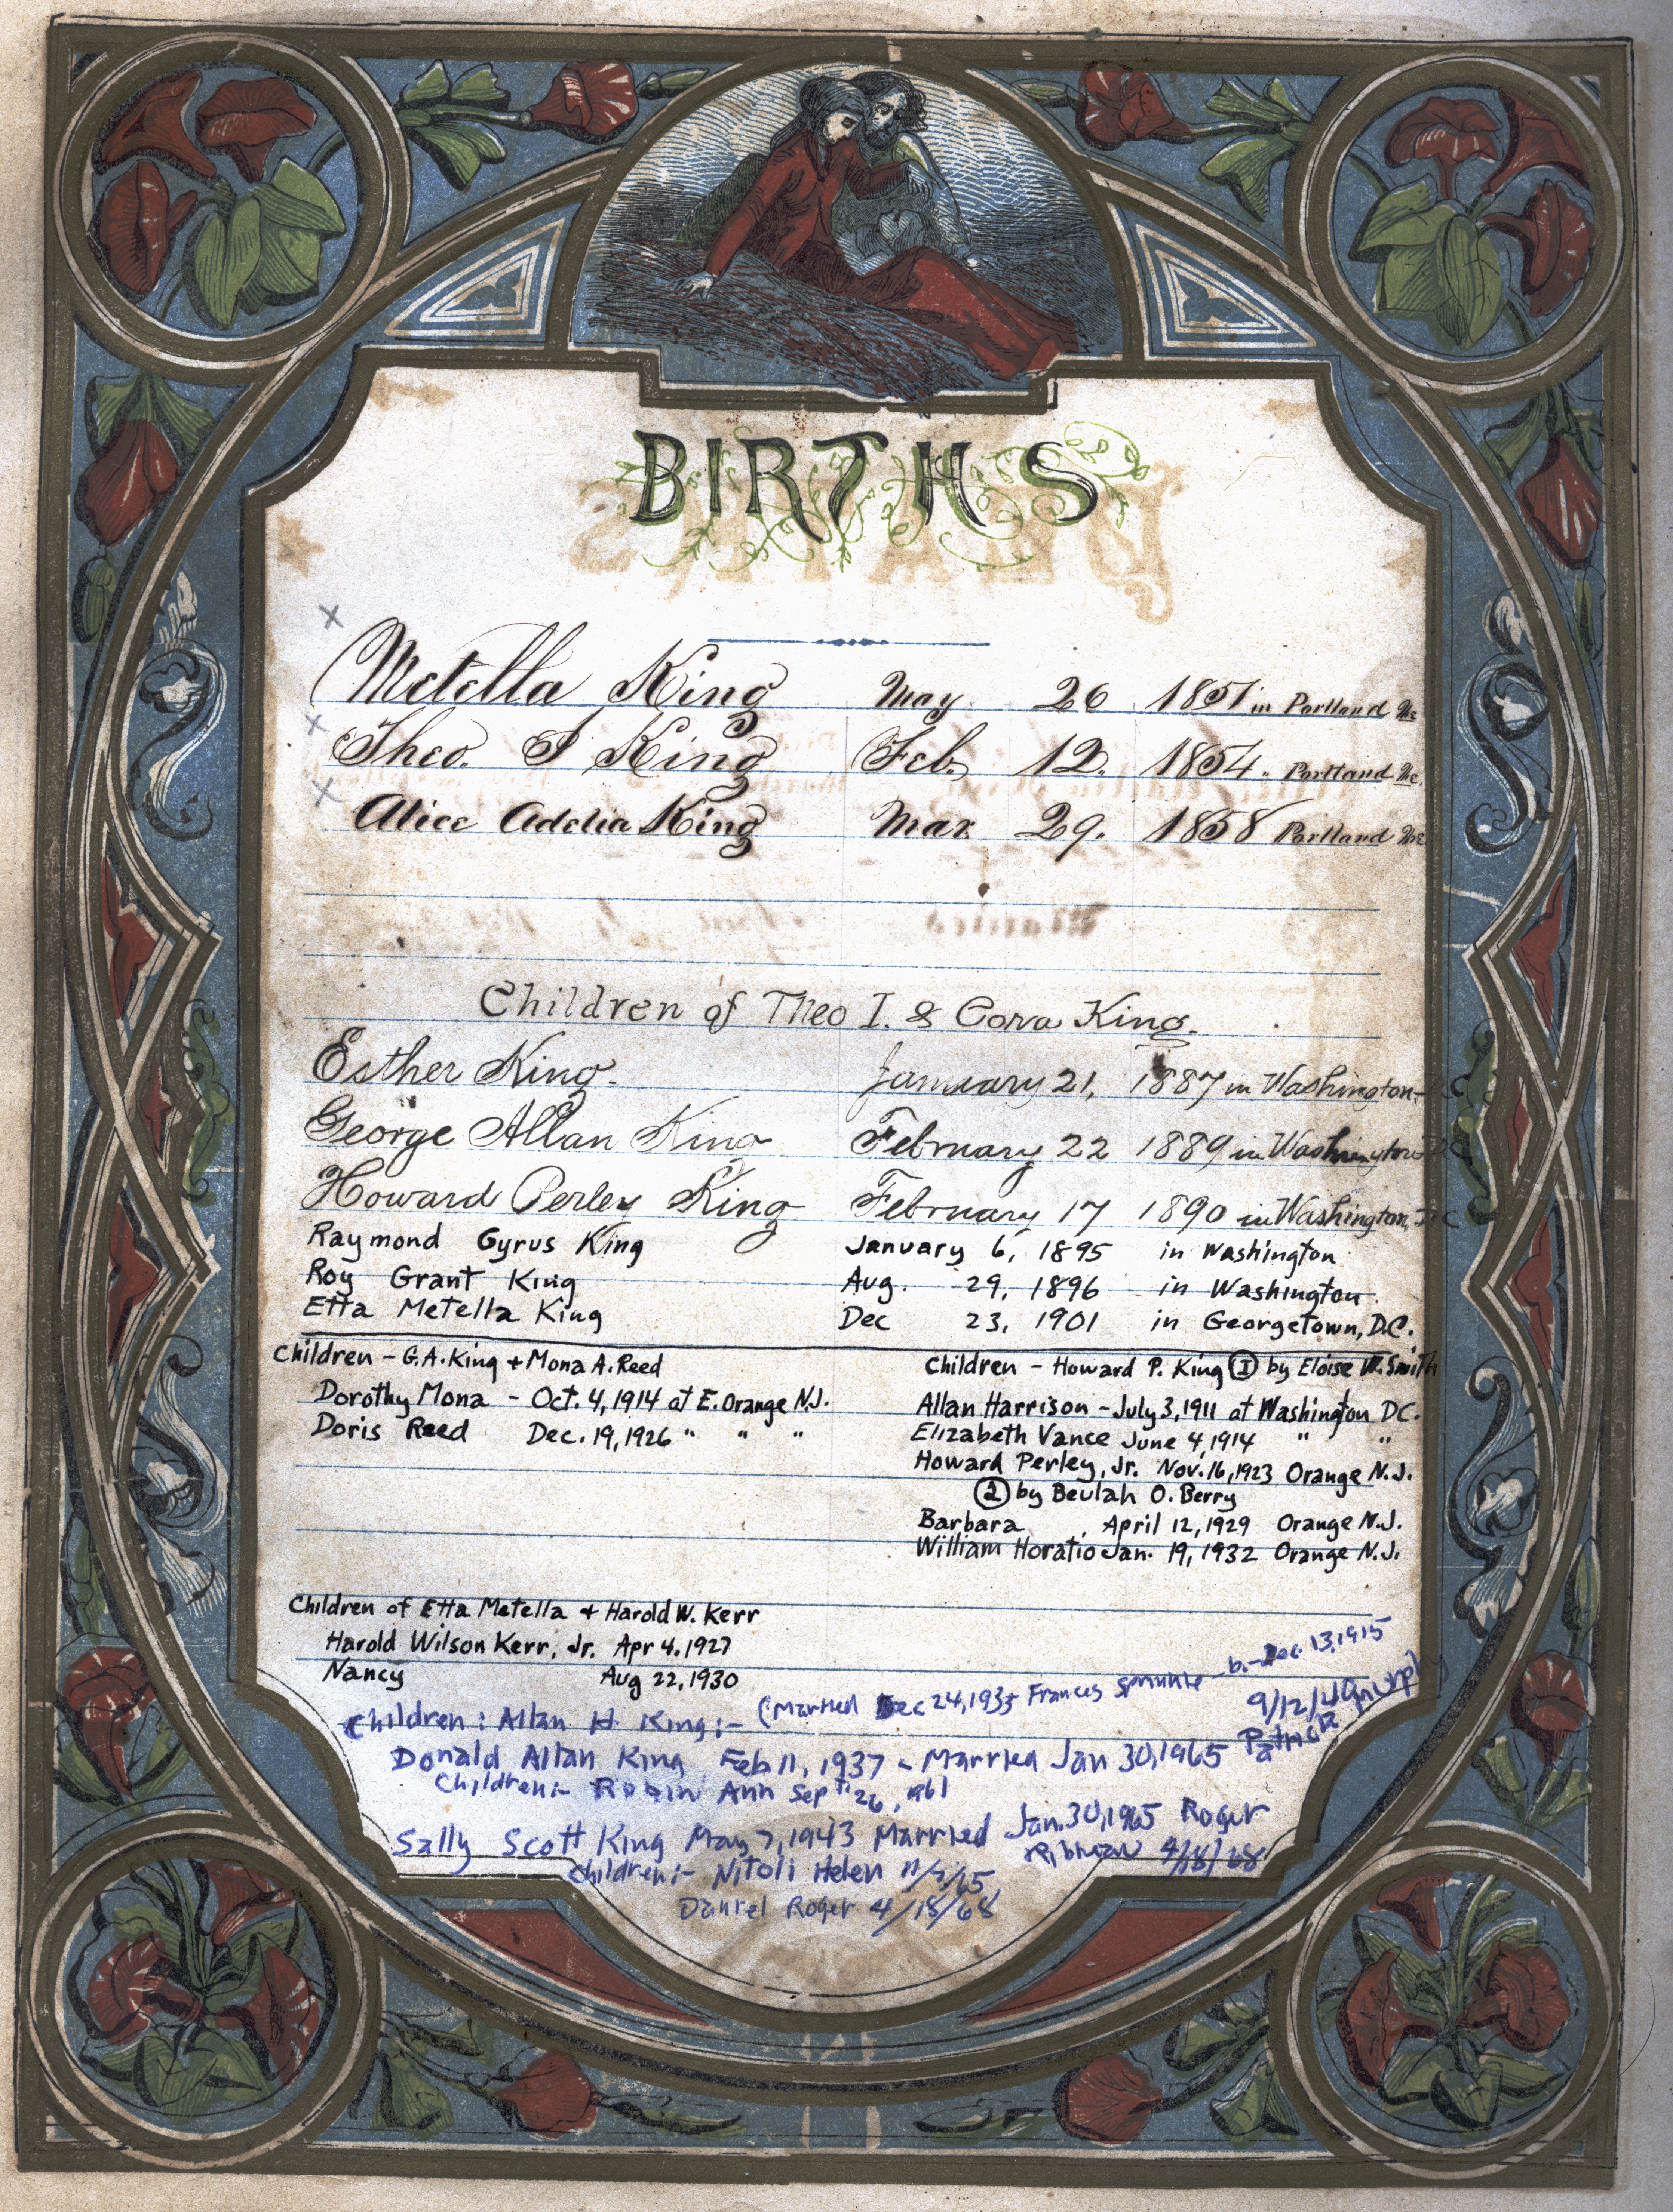 BIRTHS
Metella King May 26 1851 in Portland Me
Theo. I King Feb. 12. 1854. Portland Me.
Alice Addia King Mar. 29. 1858 Portland Me
Children of Theo I. & Cora King.
Esther King. January 21, 1887 in Washington D C
George Allan King February 22 1889 in Washington D C
Howard Perley King February 17 1890 in Washington, D C
Raymond Gyrus King January 6, 1895 in Washington
Roy Grant King Aug. 29, 1896 in Washington.
Etta Metella King Dec 23, 1901 in Georgetown, D.C.
Children - G.A. King + Mona A. Reed
Dorothy Mona - Oct. 4, 1914 at E. Orange N.J.
Doris Reed Dec. 19, 1926 " " "
Children - Howard P. King ① by Eloise W. Smith
Allan Harrison - July 3, 1911 at Washington D.C.
Elizabeth Vance June 4, 1914 " "
Howard Perley, Jr. Nov. 16, 1923 Orange N.J.
② by Beulah O. Berry
Barbara April 12, 1929 Orange N.J.
William Horatio Jan. 19, 1932 Orange N.J.
Children of Etta Metella + Harold W. Kerr
Harold Wilson Kerr, Jr. Apr 4. 1927
Nancy Aug 22, 1930
Children: Allan H. King:- (Married Dec 24, 1935 Frances Sprinkle - b. - Dec. 13, 1915
9/12/40 Murphy
Donald Allan King Feb 11, 1937 - Married Jan 30, 1965 Patricia
Children:- Robin Ann Sept 26, 1961
Sally Scott King May 7, 1943 Married Jan. 30, 1965 Roger
4/18/68
Children:- Nitoli Helen 11/9/65
Daniel Roger 4/18/68